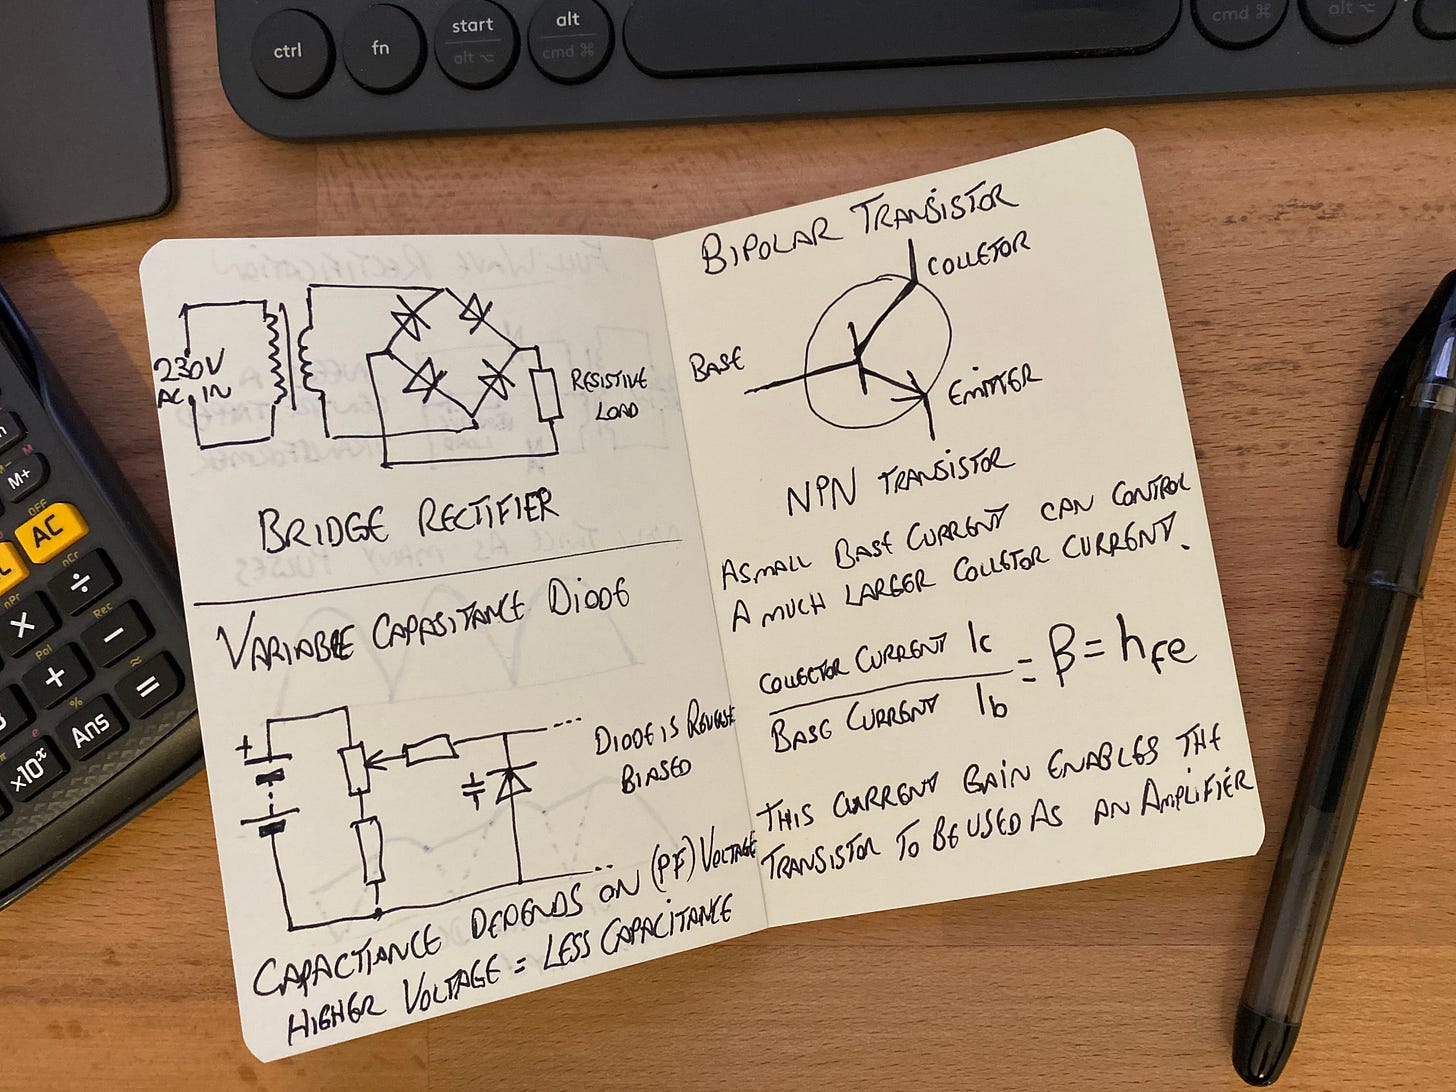 ctrl
fn
start
alt ⌥
alt
cmd ⌘
cmd ⌘
alt ⌥
230V
AC IN
RESISTIVE
LOAD
BRIDGE RECTIFIER
VARIABLE CAPASITANCE DIODE
+
DIODE IS REVERSE
BIASED
CAPACTIANCE DEPENDS ON (PF) VOLTAGE
HIGHER VOLTAGE = LESS CAPACITANCE
BIPOLAR TRANSISTOR
COLLETOR
BASE
EMITTER
NPN TRANSISTOR
A SMALL BASE CURRENT CAN CONTROL
A MUCH LARGER COLLETOR CURRENT.
COLLECTOR CURRENT Ic
BASE CURRENT Ib
= β = hfe
THIS CURRENT GAIN ENABLES THE
TRANSISTOR TO BE USED AS AN AMPLIFIER
M-
M
M+
OFF
AC
nCr
÷
nPr
×
Rec
−
Pol
+
≈
=
%
Ans
e
×10ˣ